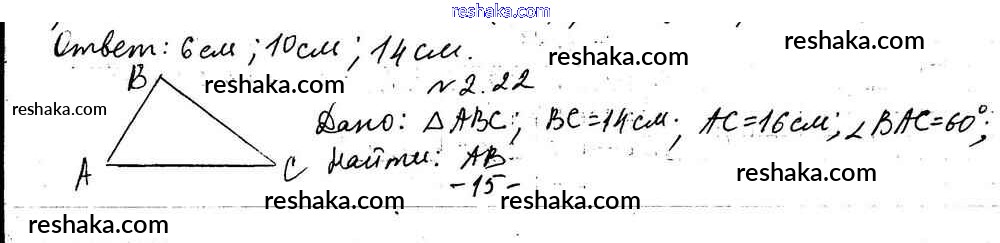 reshaka.com
Ответ: 6 см; 10 см; 14 см.
reshaka.com
B reshaka.com N 2.22
reshaka.com
Дано: △ABC; BC=14 см; AC=16 см; ∠BAC=60°;
A C Найти: AB.
reshaka.com
-15-
reshaka.com reshaka.com reshaka.com
reshaka.com